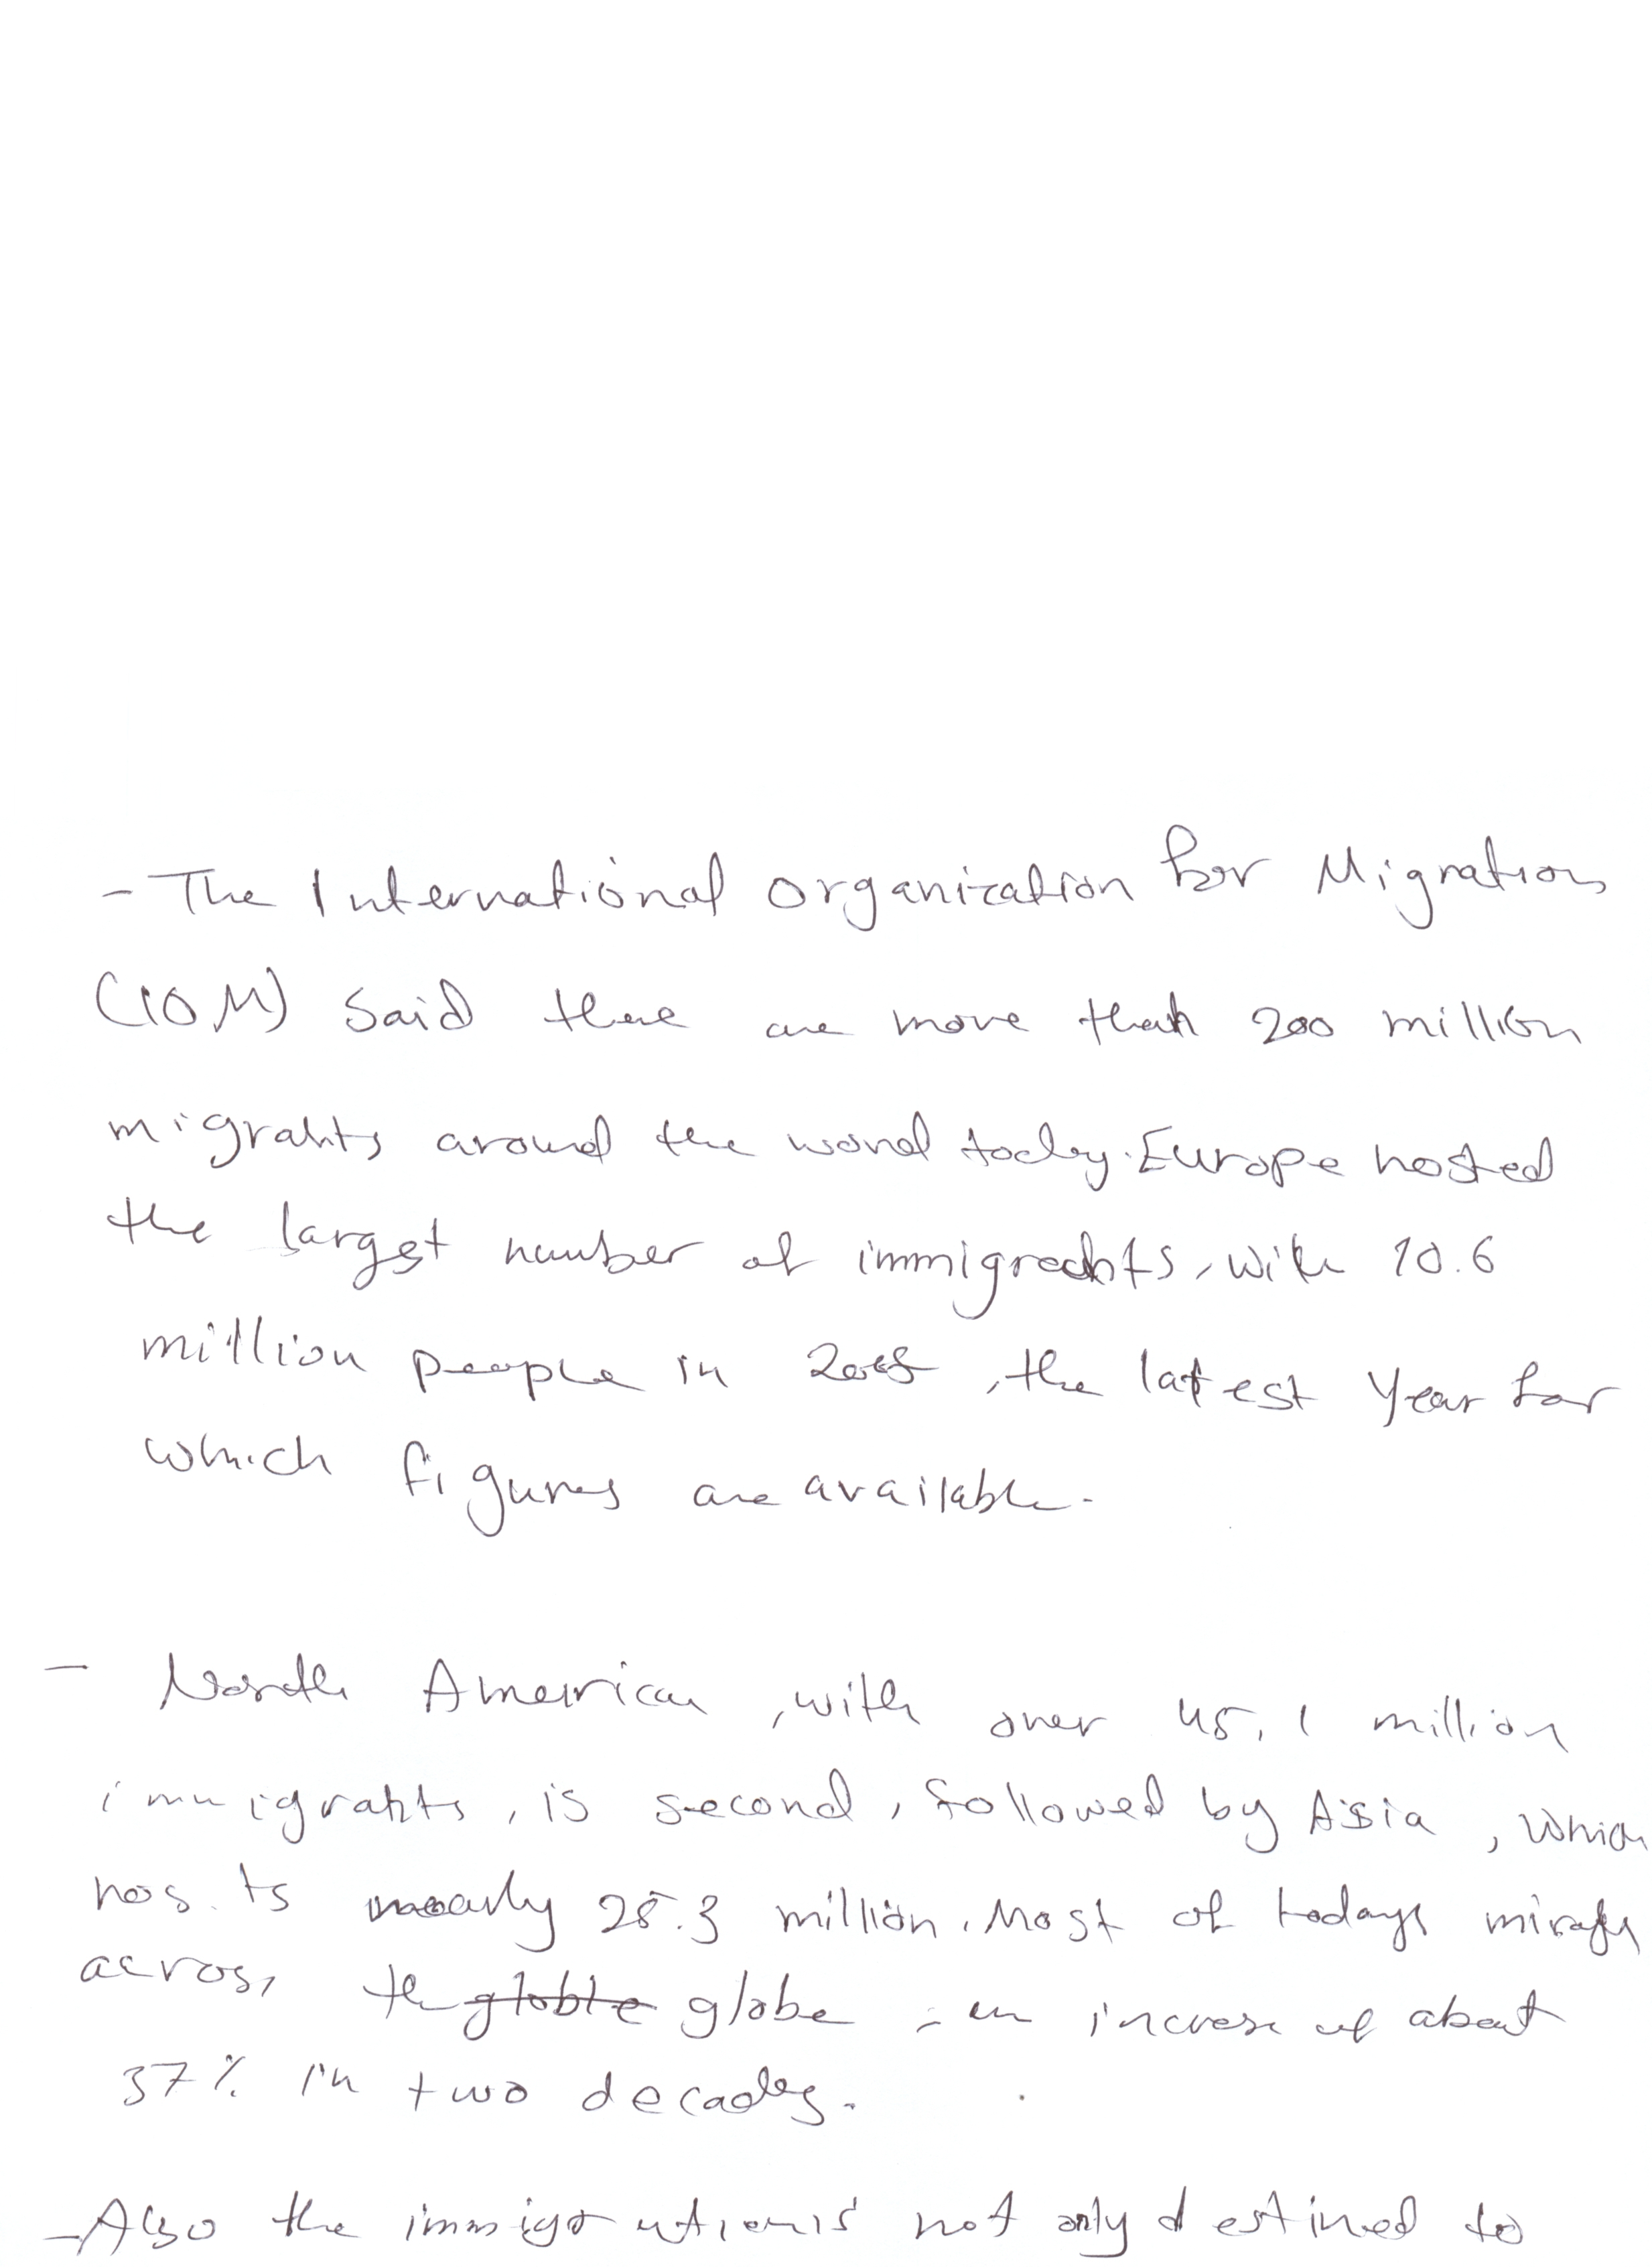 - The International organization for Migration
(IOM) said there are more than 200 million
migrants around the world today. Europe hosted
the largest number of immigrants, with 70.6
million people in 2005, the latest year for
which figures are available.
- North American, with over 45.1 million
immigrants, is second, followed by Asia, which
hosts nearly 25.3 million. Most of todays
across the globe - an increse of about
37% in two decades.
- Also the immigration is not only destined to